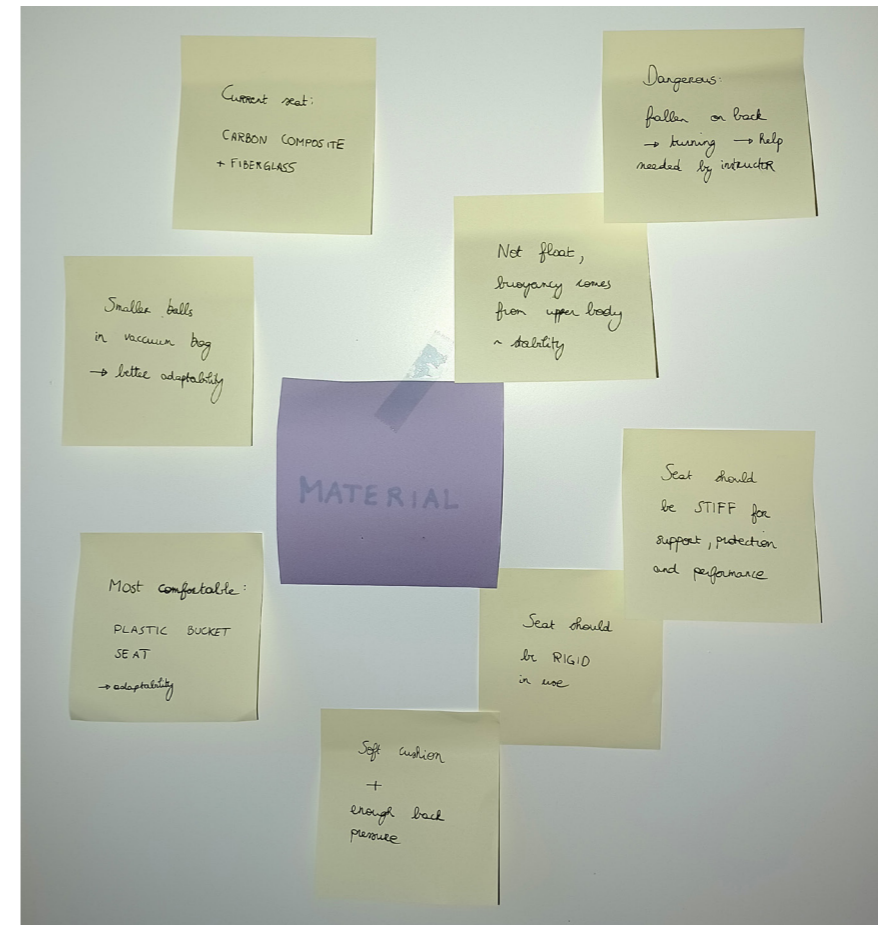 Current seat:
CARBON COMPOSITE
+ FIBERGLASS
Dangerous:
fallen on back
→ turning → help
needed by instructor
Not float,
buoyancy comes
from upper body
~ stability
Smaller balls
in vaccuum bag
→ better adaptability
MATERIAL
Seat should
be STIFF for
support, protection
and performance
Most comfortable:
PLASTIC BUCKET
SEAT
→ adaptability
Seat should
be RIGID
in use
Soft cushion
+
enough back
pressure